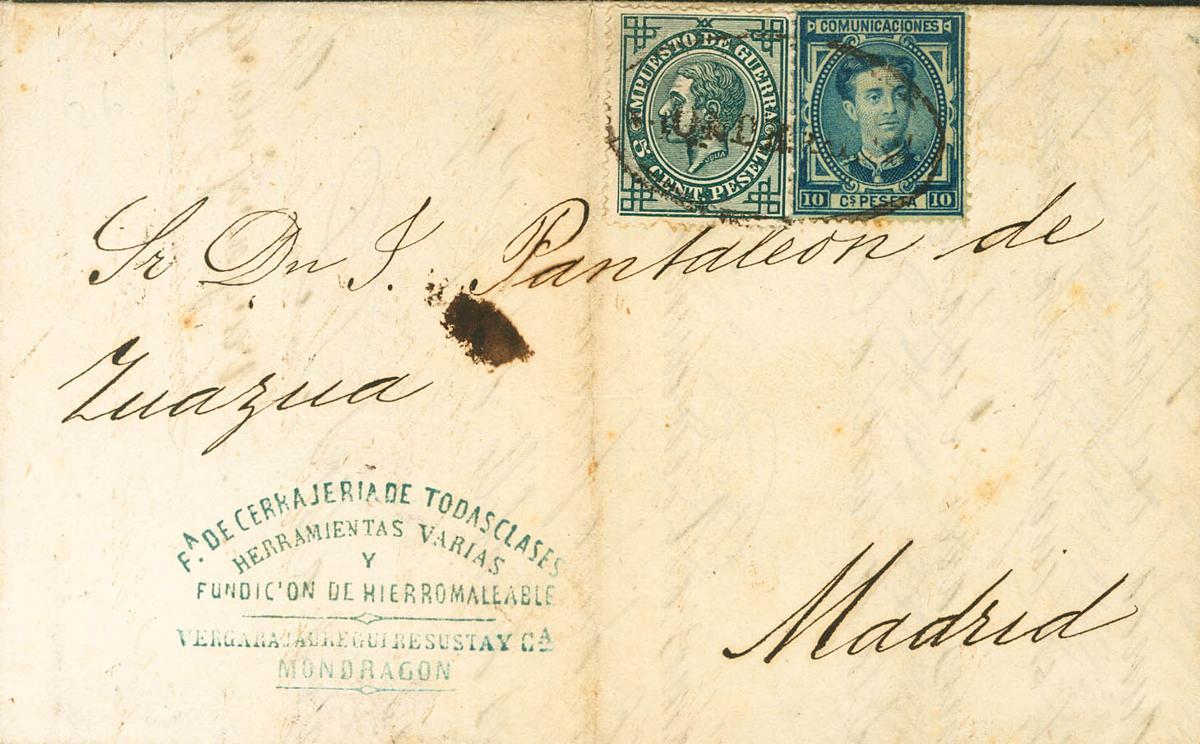 IMPUESTO DE GUERRA
5 CENT. PESETA
JULIA
COMUNICACIONES
10 Cs PESETA 10
Sr Dn J. Pantaleon de
Zuazua
Fª DE CERRAJERIA DE TODAS CLASES
HERRAMIENTAS VARIAS
Y
FUNDICION DE HIERRO MALEABLE
VERGARAJAUREGUI RESUSTA Y Cª
MONDRAGON
Madrid